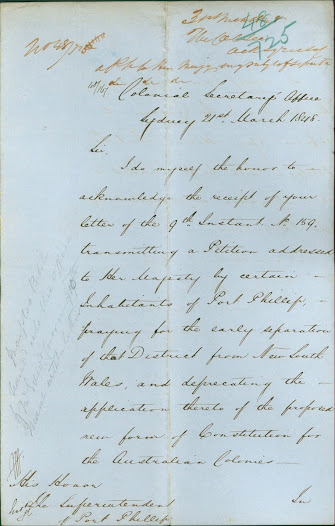 48/125
Colonial Secretary's Office
Sydney 21st March 1848.
Sir,
I do myself the honor to
acknowledge the receipt of your
letter of the 9th Instant No 159,
transmitting a Petition addressed
to Her Majesty by certain
Inhabitants of Port Phillip,
praying for the early separation
of that District from New South
Wales, and deprecating the
application thereto of the proposed
new form of Constitution for
the Australian Colonies
His Honor
The Superintendent
of Port Phillip
In